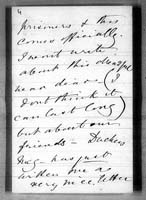 4
prisoners & this
comes officially.
I wont write
about this dreadful
near dinas (I
dont think it
can last long)
but about our
friends – Duchess
has just
written me a
very nice letter